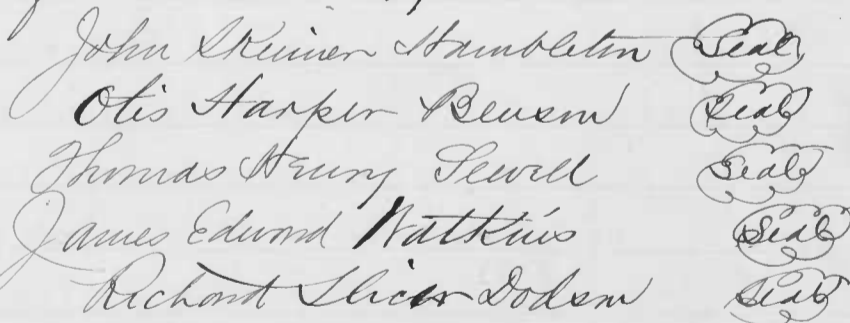 John Skinner Hambleton Seal
Otis Harper Benson Seal
Thomas Henry Sewell Seal
James Edward Watkins Seal
Richard Slicer Dodson Seal